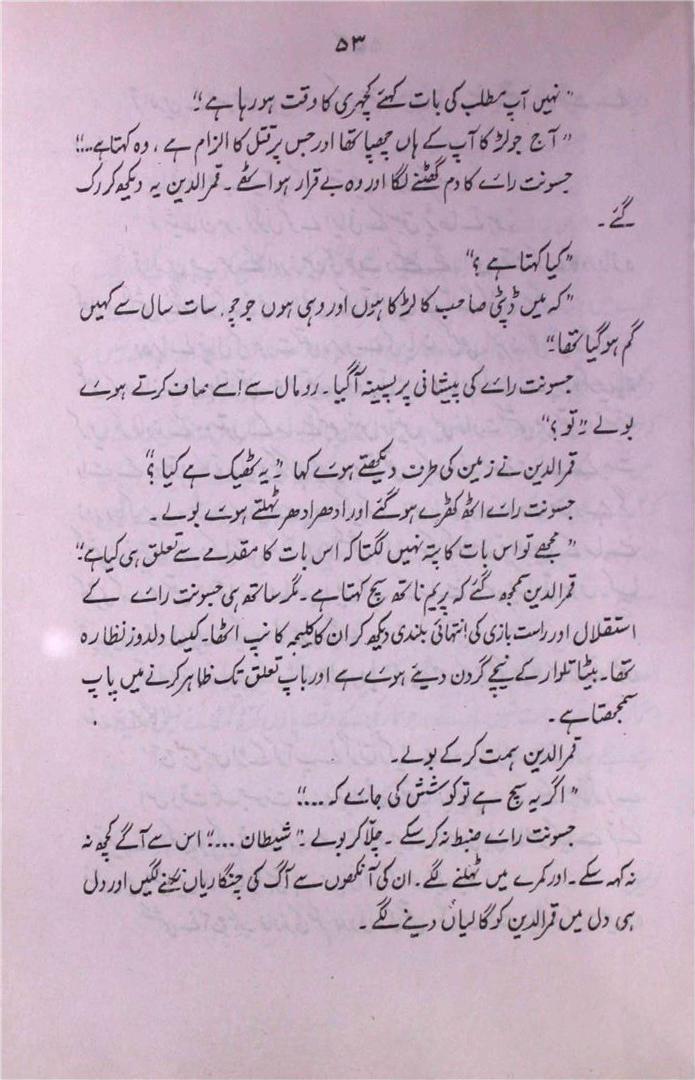 ۵۳
"نہیں آپ مطلب کی بات کہئے کچہری کا وقت ہو رہا ہے۔"
"آج جو لڑکا آپ کے ہاں چھپا تھا اور جس پر قتل کا الزام ہے، وہ کہتا ہے...."
جسونت رائے کا دم گھٹنے لگا اور وہ بے قرار ہو اٹھے۔ قمرالدین یہ دیکھ کر رک
گئے۔
"کیا کہتا ہے؟"
"کہ میں ڈپٹی صاحب کا لڑکا ہوں اور وہی ہوں جو چھ، سات سال سے کہیں
گم ہو گیا تھا۔"
جسونت رائے کی پیشانی پر پسینہ آگیا۔ رومال سے اسے صاف کرتے ہوئے
بولے "تو؟"
قمرالدین نے زمین کی طرف دیکھتے ہوئے کہا "یہ ٹھیک ہے کیا؟"
جسونت رائے اٹھ کھڑے ہو گئے اور ادھر ادھر ٹہلتے ہوئے بولے۔
"مجھے تو اس بات کا پتہ نہیں لگتا کہ اس بات کا مقدمے سے تعلق ہی کیا ہے۔"
قمرالدین سمجھ گئے کہ پریم ناتھ سچ کہتا ہے۔ مگر ساتھ ہی جسونت رائے کے
استقلال اور راست بازی کی انتہائی بلندی دیکھ کر ان کا کلیجہ کانپ اٹھا۔ کیسا دلدوز نظارہ
تھا۔ بیٹا تلوار کے نیچے گردن دیئے ہوئے ہے اور باپ تعلق تک ظاہر کرنے میں پاپ
سمجھتا ہے۔
قمرالدین ہمت کرکے بولے۔
"اگر یہ سچ ہے تو کوشش کی جائے کہ...."
جسونت رائے ضبط نہ کر سکے۔ چلا کر بولے۔ "شیطان...." اس سے آگے کچھ نہ
نہ کہہ سکے۔ اور کمرے میں ٹہلنے لگے۔ ان کی آنکھوں سے آگ کی چنگاریاں نکلنے لگیں اور دل
ہی دل میں قمرالدین کو گالیاں دینے لگے۔